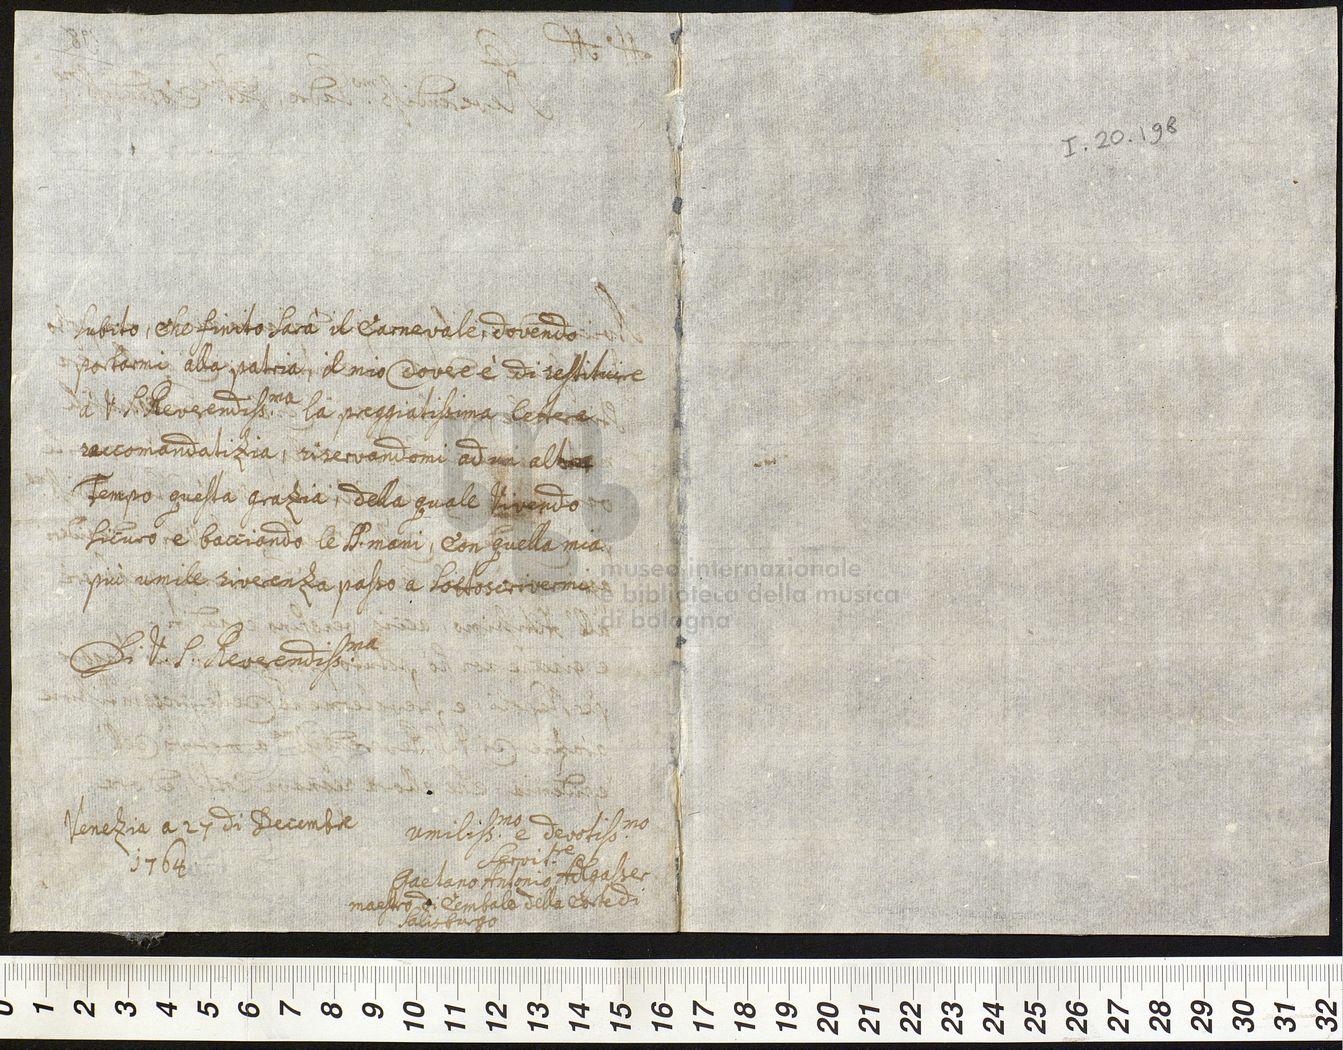 subito, che finito sarà il Carnevale, dovendo
portarmi alla patria, il mio dovere è di restituire
à V. S. Reverendiss.ma la preggiatissima lettera
raccomandatizia, riservandomi ad un altro
Tempo questa grazia, della quale Vivendo
sicuro e bacciando le S. mani, con quella mia
più umile riverenza passo a sottoscrivermi
Di V. S. Reverendiss.ma
Venezia a 27 di Decembre
1764
umiliss.mo e devotiss.mo
Servit.re
Gaetano Antonio Adlgasser
maestro di Cembalo della Corte di
Salisburgo
I. 20. 198
museo internazionale
e biblioteca della musica
di bologna
0 1 2 3 4 5 6 7 8 9 10 11 12 13 14 15 16 17 18 19 20 21 22 23 24 25 26 27 28 29 30 31 32